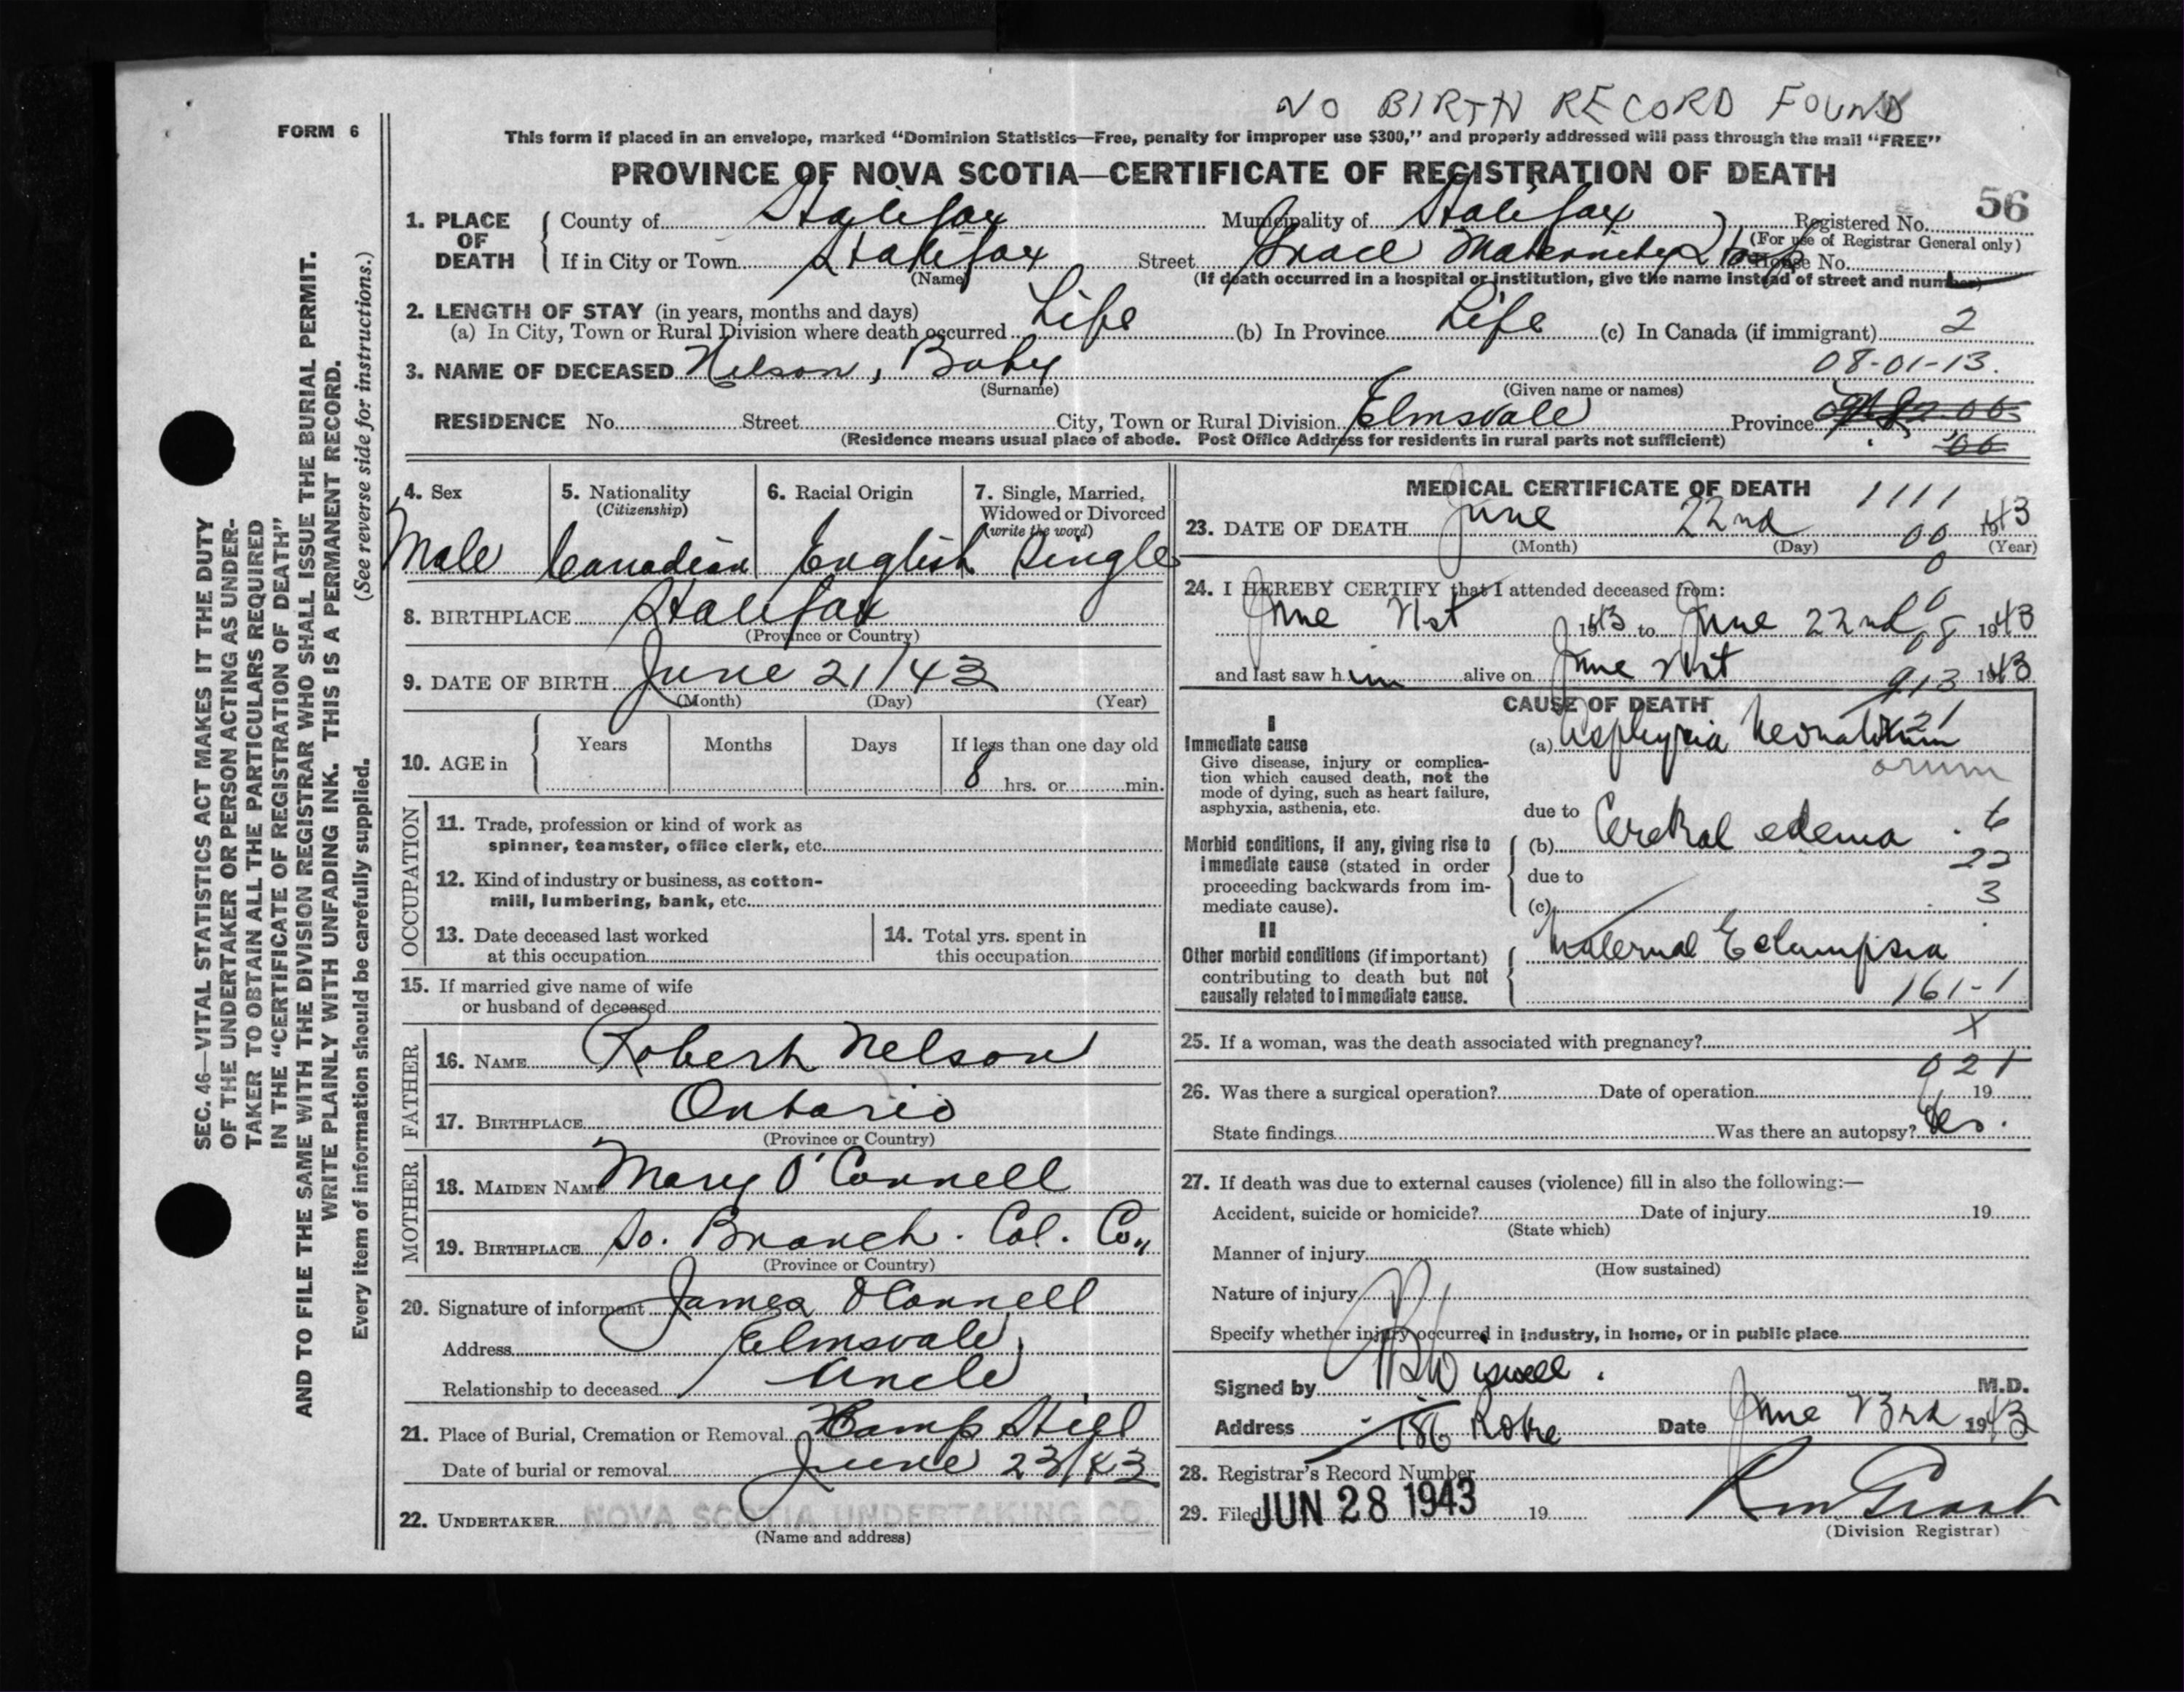 NO BIRTH RECORD FOUND
FORM 6
This form if placed in an envelope, marked “Dominion Statistics—Free, penalty for improper use $300,” and properly addressed will pass through the mail “FREE”
PROVINCE OF NOVA SCOTIA—CERTIFICATE OF REGISTRATION OF DEATH
56
SEC. 46—VITAL STATISTICS ACT MAKES IT THE DUTY
OF THE UNDERTAKER OR PERSON ACTING AS UNDER-
TAKER TO OBTAIN ALL THE PARTICULARS REQUIRED
IN THE “CERTIFICATE OF REGISTRATION OF DEATH”
AND TO FILE THE SAME WITH THE DIVISION REGISTRAR WHO SHALL ISSUE THE BURIAL PERMIT.
WRITE PLAINLY WITH UNFADING INK. THIS IS A PERMANENT RECORD.
Every item of information should be carefully supplied. (See reverse side for instructions.)
1. PLACE OF DEATH County of Halifax Municipality of Halifax Registered No.
(For use of Registrar General only)
If in City or Town Halifax Street Grace Maternity Hosp House No.
(Name) (If death occurred in a hospital or institution, give the name instead of street and number)
2. LENGTH OF STAY (in years, months and days)
(a) In City, Town or Rural Division where death occurred Life (b) In Province Life (c) In Canada (if immigrant) 2
3. NAME OF DECEASED Nelson, Baby 08-01-13.
(Surname) (Given name or names)
RESIDENCE No. Street City, Town or Rural Division Elmsvale Province
(Residence means usual place of abode. Post Office Address for residents in rural parts not sufficient)
4. Sex 5. Nationality (Citizenship) 6. Racial Origin 7. Single, Married, Widowed or Divorced (write the word)
Male Canadian English Single
8. BIRTHPLACE Halifax
(Province or Country)
9. DATE OF BIRTH June 21/43
(Month) (Day) (Year)
10. AGE in Years Months Days If less than one day old
8 hrs. or min.
OCCUPATION
11. Trade, profession or kind of work as
spinner, teamster, office clerk, etc.
12. Kind of industry or business, as cotton-
mill, lumbering, bank, etc.
13. Date deceased last worked
at this occupation
14. Total yrs. spent in
this occupation
15. If married give name of wife
or husband of deceased
FATHER
16. NAME Robert Nelson
17. BIRTHPLACE Ontario
(Province or Country)
MOTHER
18. MAIDEN NAME Mary O'Connell
19. BIRTHPLACE So. Branch. Col. Co.
(Province or Country)
20. Signature of informant James O'Connell
Address Elmsvale
Relationship to deceased Uncle
21. Place of Burial, Cremation or Removal Camp Hill
Date of burial or removal June 23/43
22. UNDERTAKER NOVA SCOTIA UNDERTAKING CO.
(Name and address)
MEDICAL CERTIFICATE OF DEATH 1111
23. DATE OF DEATH June 22nd 1943
00
(Month) (Day) (Year)
0
24. I HEREBY CERTIFY that I attended deceased from:
June 21st 1943 to June 22nd 1943
and last saw him alive on June 21st 1943
913
CAUSE OF DEATH
I
Immediate cause
Give disease, injury or complica-
tion which caused death, not the
mode of dying, such as heart failure,
asphyxia, asthenia, etc.
(a) Asphyxia Neonatorum
orum
due to
Morbid conditions, if any, giving rise to
immediate cause (stated in order
proceeding backwards from im-
mediate cause).
(b) Cerebral edema
6
22
due to
3
(c)
II
Other morbid conditions (if important)
contributing to death but not
causally related to immediate cause.
Maternal Eclampsia
161-1
25. If a woman, was the death associated with pregnancy? X
021
26. Was there a surgical operation? Date of operation 19
State findings Was there an autopsy? Yes.
27. If death was due to external causes (violence) fill in also the following:—
Accident, suicide or homicide? Date of injury 19
(State which)
Manner of injury
(How sustained)
Nature of injury
Specify whether injury occurred in industry, in home, or in public place
Signed by Wiswell. M.D.
Address 186 Robie Date June 23rd 1943
28. Registrar's Record Number
29. Filed JUN 28 1943 19 Grant
(Division Registrar)